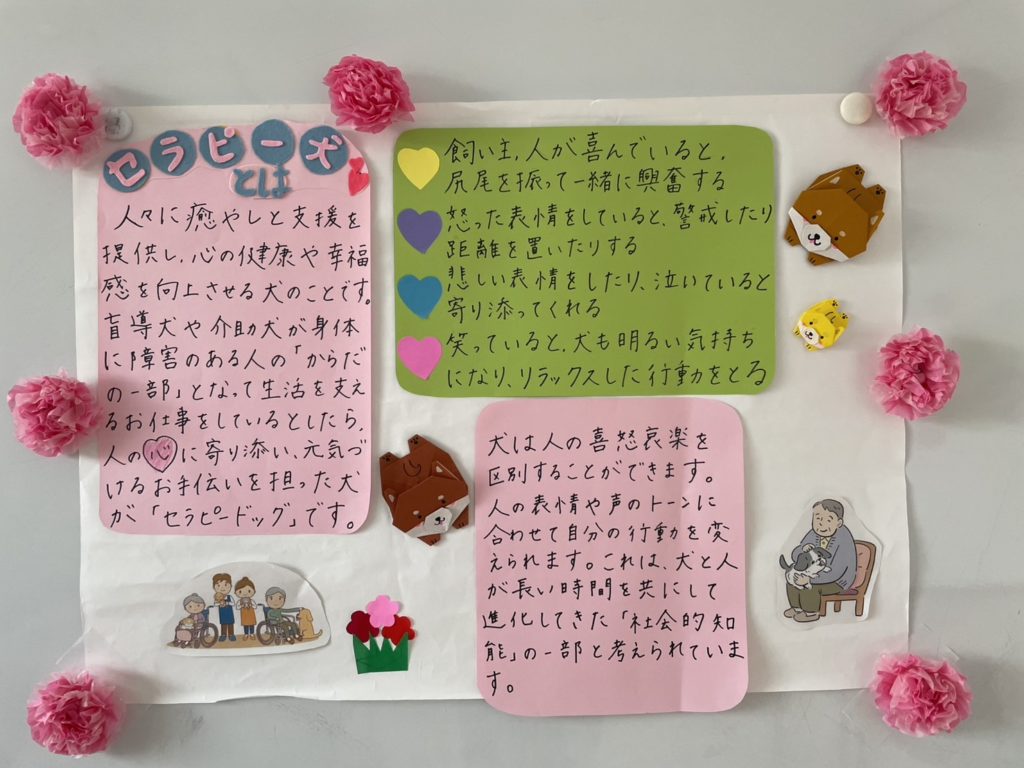 セラピー犬
とは
人々に癒やしと支援を
提供し、心の健康や幸福
感を向上させる犬のことです。
盲導犬や介助犬が身体
に障害のある人の「からだ
の一部」となって生活を支え
るお仕事をしているとしたら、
人の心に寄り添い、元気づ
けるお手伝いを担った犬
が「セラピードッグ」です。
飼い主、人が喜んでいると、
尻尾を振って一緒に興奮する
怒った表情をしていると、警戒したり
距離を置いたりする
悲しい表情をしたり、泣いていると
寄り添ってくれる
笑っていると、犬も明るい気持ち
になり、リラックスした行動をとる
犬は人の喜怒哀楽を
区別することができます。
人の表情や声のトーンに
合わせて自分の行動を変
えられます。これは、犬と人
が長い時間を共にして
進化してきた「社会的知
能」の一部と考えられていま
す。